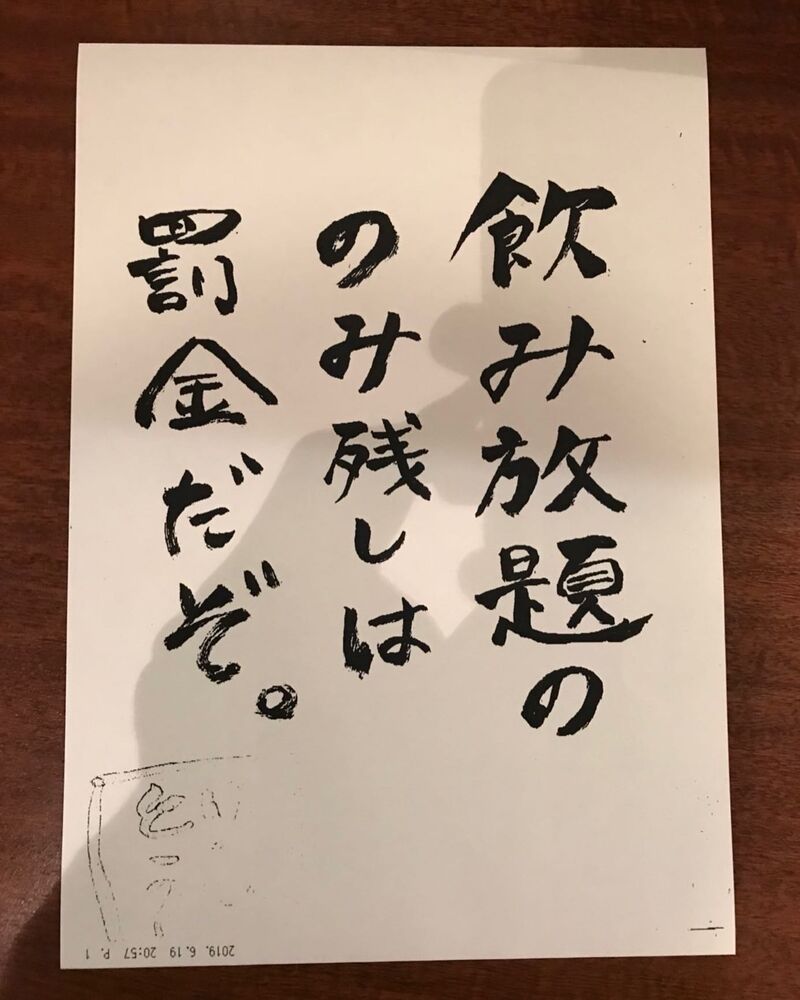 飲み放題の
のみ残しは
罰金だぞ。
2019. 6.19 20:57 P. 1